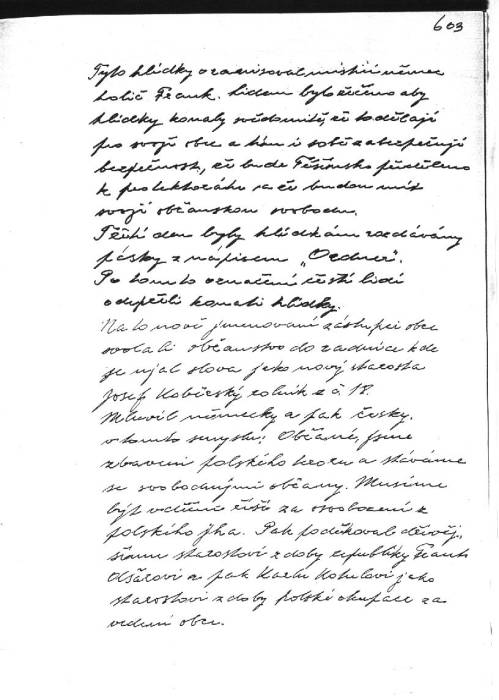 603
Tyto hlídky organisoval místní němec
holič Frank. Lidem bylo řečeno aby
hlídky konaly svědomitě, že to dělají
pro svoji obec a tím i sobě zabezpečují
bezpečnost, že bude Těšínsko přiděleno
k protektorátu a že budou míti
svojí občanskou svobodu.
Příští den byly hlídkám rozdávány
pásky z nápisem „Ordner".
Po tomto označení čeští lidé
odepřeli konati hlídky.
Na to nově jmenovaní zástupci obce
svolali občanstvo do radnice kde
se ujal slova jako nový starosta
Josef Kobierský rolník z č. 18.
Mluvil německy a pak česky.
v tomto smyslu: Občané, jsme
zbaveni polského teroru a stáváme
se svobodnými občany. Musíme
být vděčni říši za osvobození z
polského jha. Pak poděkoval dřívěj-
šímu starostovi z doby republiky Frant.
Olšarovi a pak Karlu Kohutovi jeho
starostovi z doby polské okupace za
vedení obce.